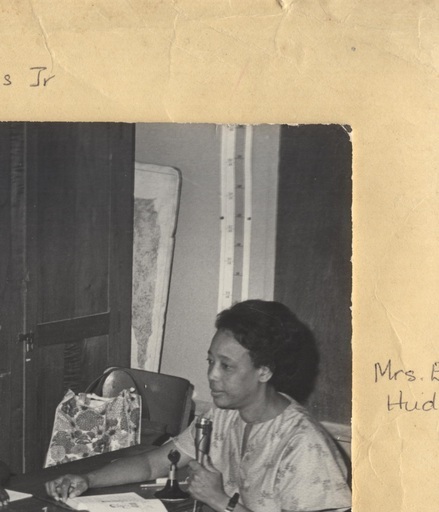 s Jr
Mrs. E
Hud